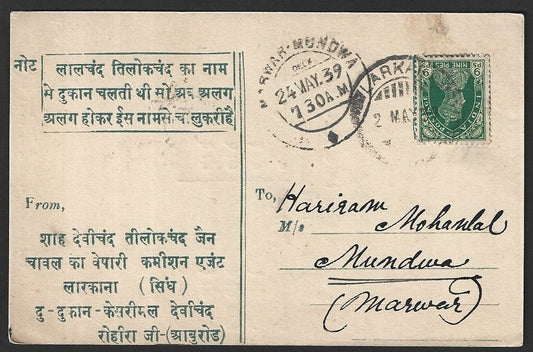 नोट
लालचंद तिलोकचंद का नाम
मे दुकान चलती थी सो अब अलग
अलग होकर ईस नामसे चालु करी है
MARWAR-MUNDWA
DELY
24 MAY.39
7 30 A.M
LARKA
2 MAY
NINE PIES
INDIA POSTAGE
From,
शाह देवीचंद तीलोकचंद जैन
चावल का वेपारी कमीशन एजंट
लारकाना (सिंध)
दु-दुकान-केसरीमल देवीचंद
रोहीरा जी-(आबुरोड)
To,
M/s
Hariram Mohanlal
Mundwa
(Marwar)